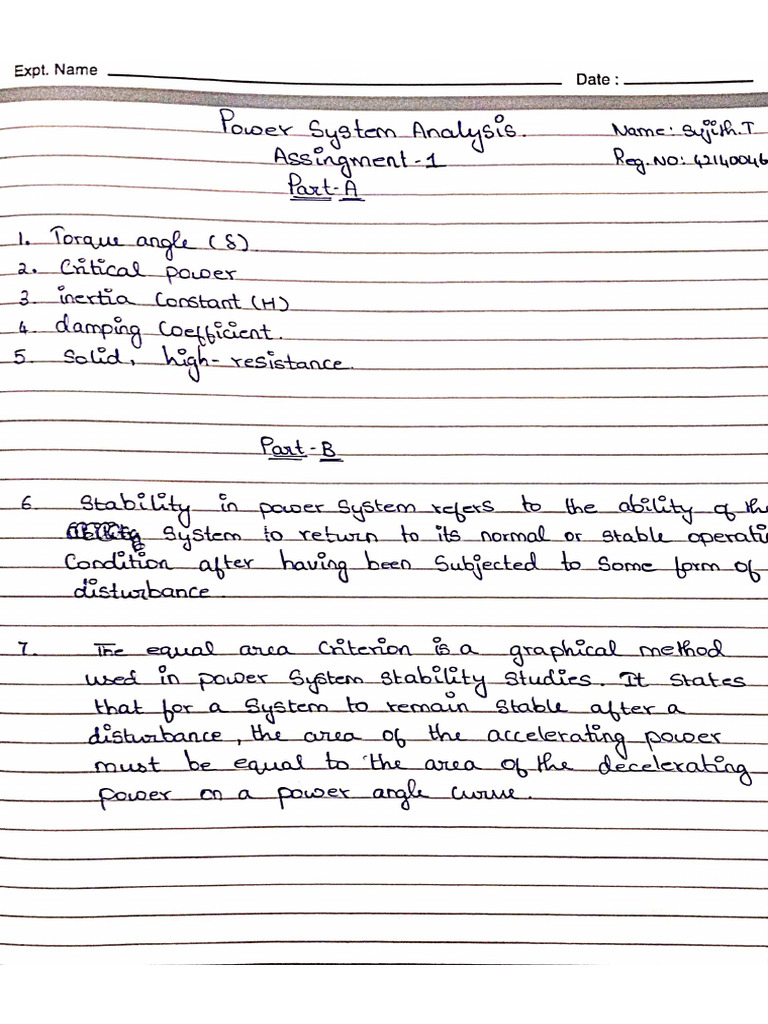 Expt. Name
Date :
Power System Analysis.
Name: Sujith.T
Assingment-1
Reg.NO: 42140046
Part-A
1. Torque angle (δ)
2. Critical power
3 inertia Constant (H)
4. damping Coefficient.
5. Solid, high-resistance.
Part-B
6 Stability in power System refers to the ability of the
System to return to its normal or stable operati
Condition after having been Subjected to Some form of
disturbance.
7. The equal area Criterion is a graphical method
used in power System Stability Studies. It States
that for a System to remain Stable after a
disturbance, the area of the accelerating power
must be equal to the area of the decelerating
power on a power angle curve.